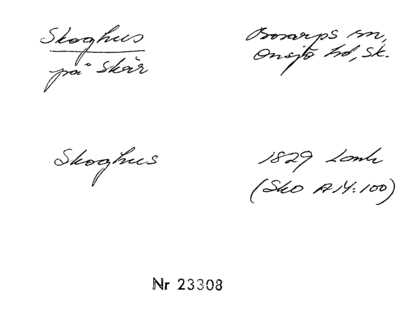 Skoghus
på Skär
Bosarps sn,
Onsjö hd, Sk.
Skoghus
1829 Lantm
(Sko A14:100)
Nr 23308